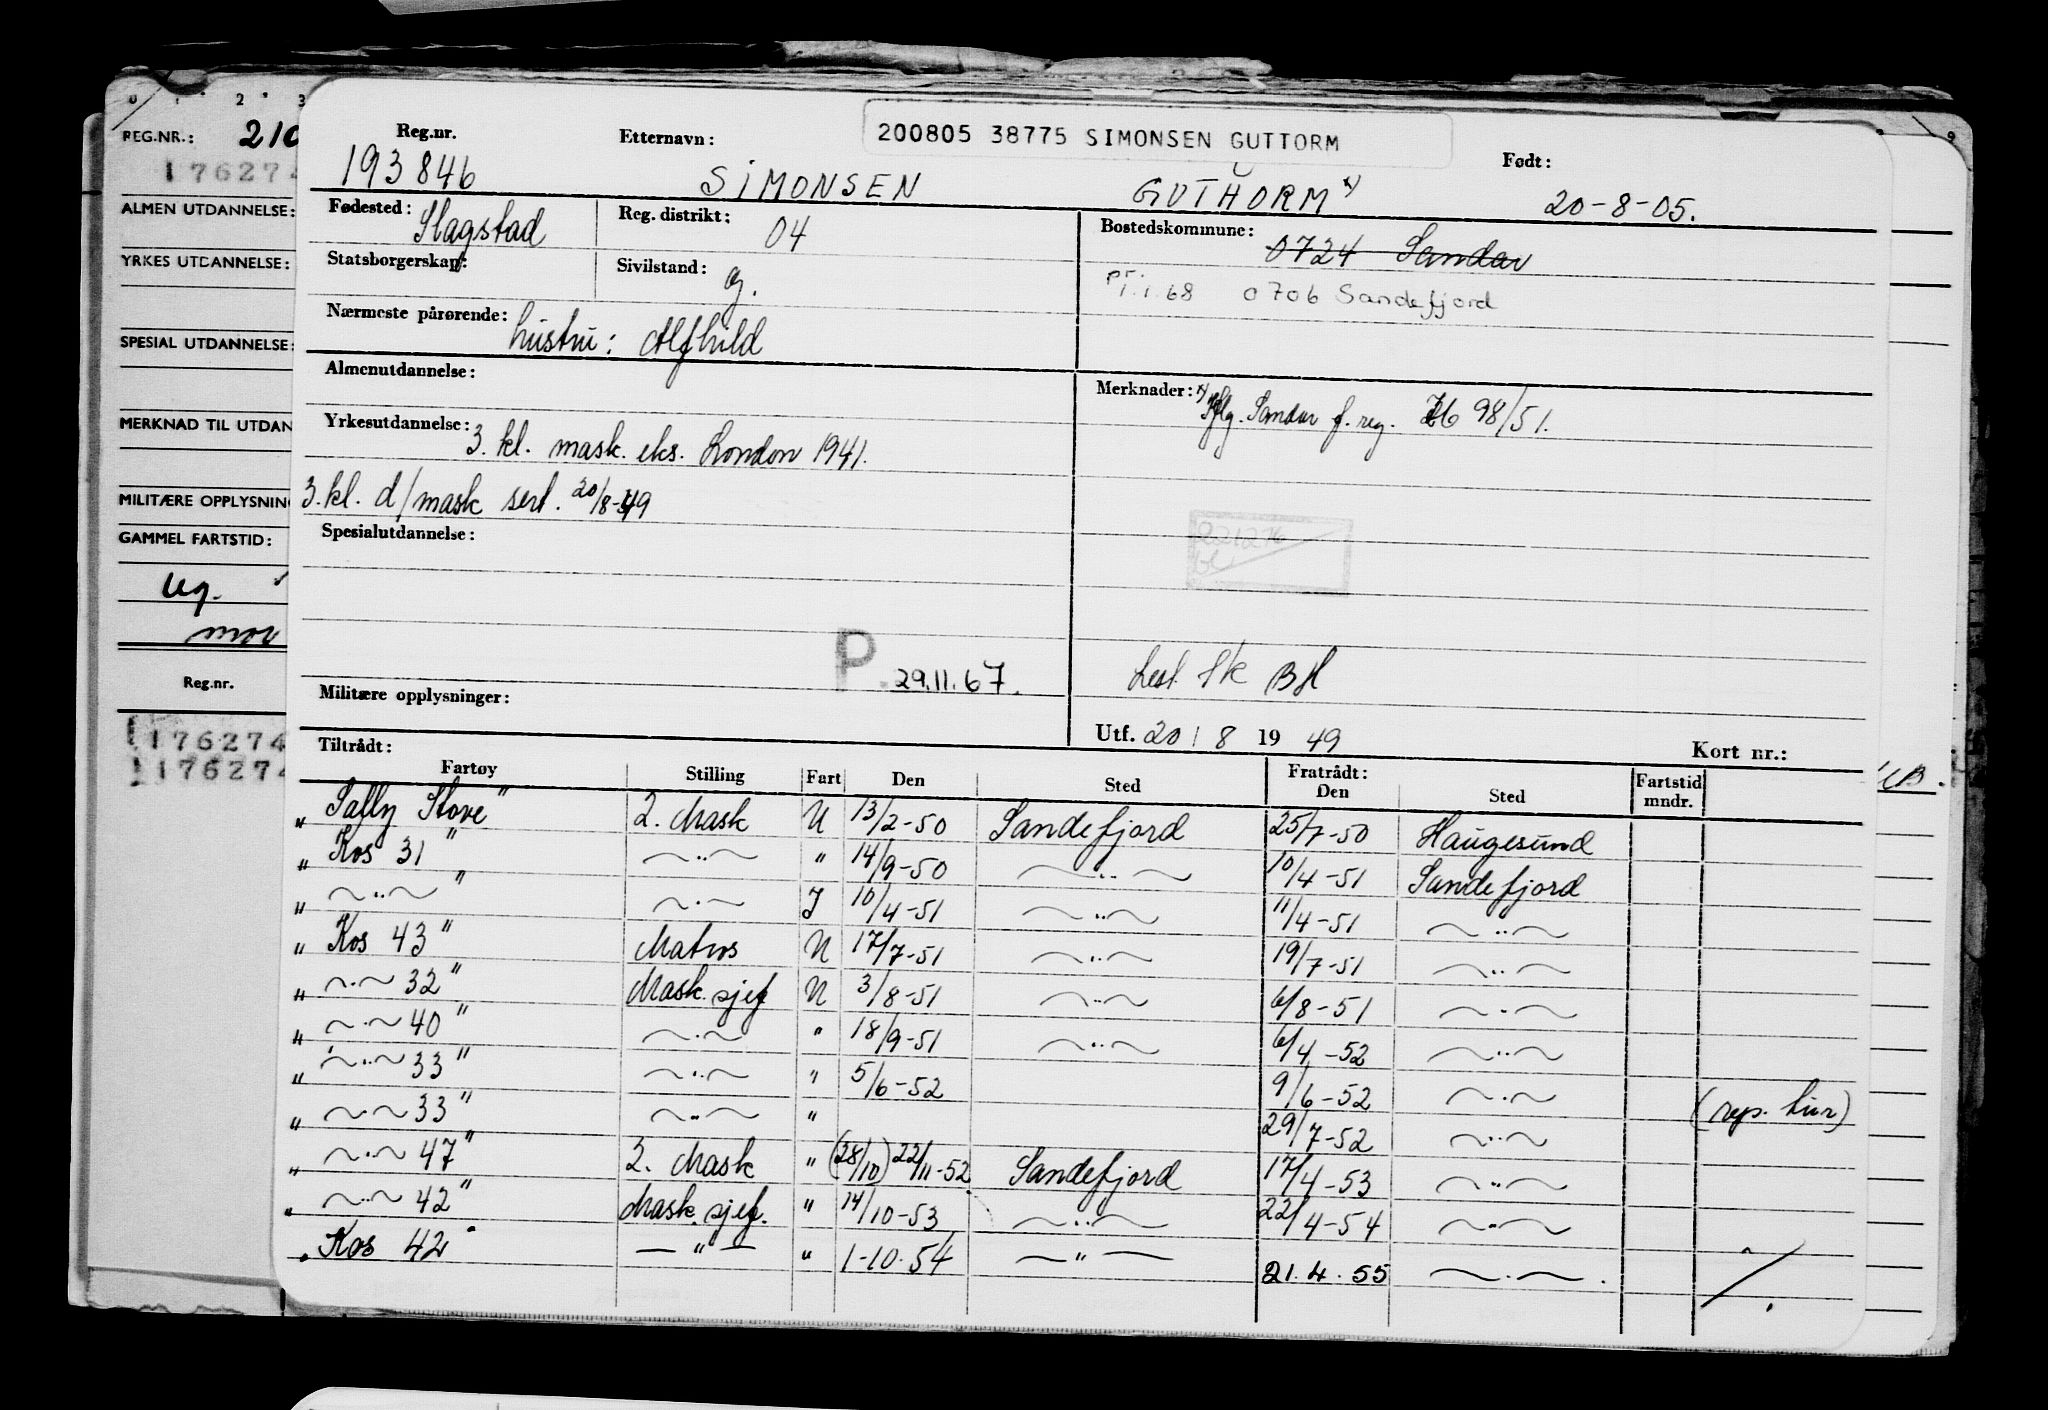 0 1 2 3
REG.NR.: 210
176274
ALMEN UTDANNELSE:
YRKES UTDANNELSE:
SPECIAL UTDANNELSE:
MERKNAD TIL UTDAN
MILITÆRE OPPLYSNING
GAMMEL FARTSTID:
ug.
mov
Reg.nr.
176274
176274
Reg.nr. Etternavn: 200805 38775 SIMONSEN GUTTORM Født:
193846 SIMONSEN GUTHORM x) 20-8-05.
Fødested: Slagstad Reg. distrikt: 04 Bostedskommune: 0724 Sandar
Statsborgerskap: Sivilstand: g. pr. 1.1.68 0706 Sandefjord
Nærmeste pårørende: hustru: Alfhild
Almenutdannelse: Merknader: x) Iflg. Sandar f. reg. 98/51.
Yrkesutdannelse: 3. kl. mask. eks. London 1941.
3. kl. d/mask sert. 20/8-49
Spesialutdannelse:
221276
P. 29.11.67. Lest BH
Militære opplysninger:
Utf. 20/8 1949 Kort nr.:
Tiltrådt: Fratrådt:
Fartøy Stilling Fart Den Sted Den Sted Fartstid mndr.
„Sally Stove" 2. Mask U 13/2-50 Sandefjord 25/7-50 Haugesund
„Kos 31" ~"~ " 14/9-50 ~"~ 10/4-51 Sandefjord
„~"~" ~"~ I 10/4-51 ~"~ 11/4-51 ~"~
„Kos 43" Matros U 17/7-51 ~"~ 19/7-51 ~"~
„~"~ 32" Mask.sjef U 3/8-51 ~"~ 6/8-51 ~"~
„~"~ 40" ~"~ " 18/9-51 ~"~ 6/4-52 ~"~
„~"~ 33" ~"~ " 5/6-52 9/6-52 ~"~ (rep. tur)
„~"~ 33" ~"~ " 29/7-52 ~"~
„~"~ 47" 2. Mask " (28/10) 22/11-52 Sandefjord 17/4-53 ~"~
„~"~ 42" Mask.sjef. " 14/10-53 ~"~ 22/4-54 ~"~
„Kos 42" —"— " 1-10-54 —"— 21.4.55 ~"~.